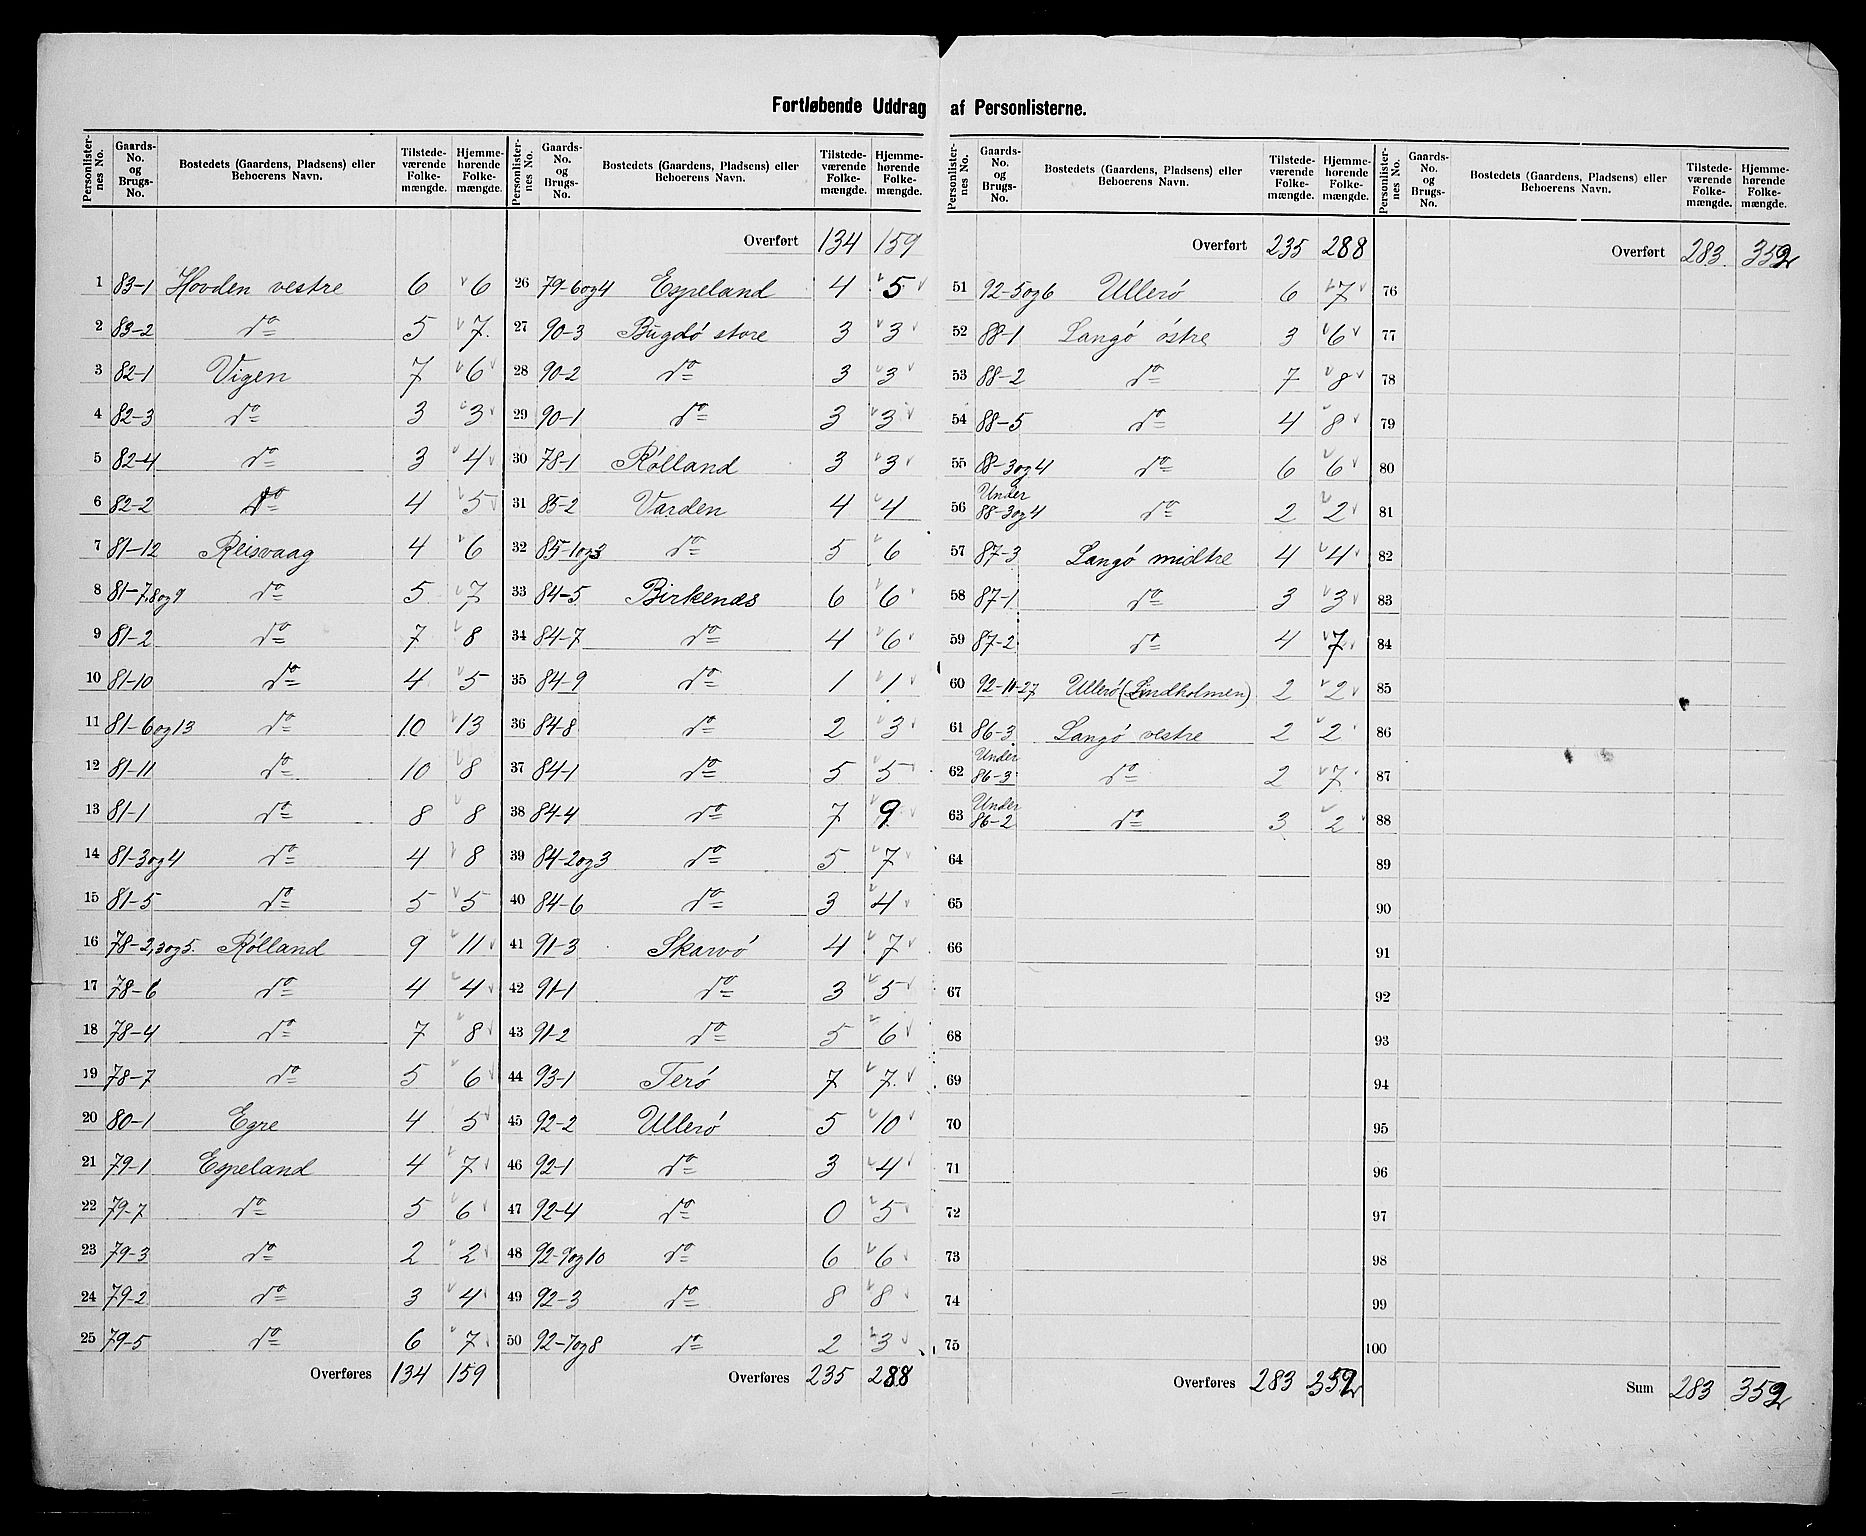 Fortløbende Uddrag af Personlisterne.
Personlisternes No. Gaards-No. og Brugs-No. Bostedets (Gaardens, Pladsens) eller Beboerens Navn. Tilstedeværende Folkemængde. Hjemmehørende Folkemængde.
1 83-1 Hovden vestre 6 6
2 83-2 do 5 7
3 82-1 Vigen 7 6
4 82-3 do 3 3
5 82-4 do 3 4
6 82-2 do 4 5
7 81-12 Reisvaag 4 6
8 81-7,8og9 do 5 7
9 81-2 do 7 8
10 81-10 do 4 5
11 81-6og13 do 10 13
12 81-11 do 10 8
13 81-1 do 8 8
14 81-3og4 do 4 8
15 81-5 do 5 5
16 78-2,3og5. Rølland 9 11
17 78-6 do 4 4
18 78-4 do 7 8
19 78-7 do 5 6
20 80-1 Egre 4 5
21 79-1 Espeland 4 7
22 79-7 do 5 6
23 79-3 do 2 2
24 79-2 do 3 4
25 79-5 do 6 7
Overføres 134 159
Personlisternes No. Gaards-No. og Brugs-No. Bostedets (Gaardens, Pladsens) eller Beboerens Navn. Tilstedeværende Folkemængde. Hjemmehørende Folkemængde.
Overført 134 159
26 79-6og4 Espeland 4 5
27 90-3 Bugdø store 3 3
28 90-2 do 3 3
29 90-1 do 3 3
30 78-1 Rølland 3 3
31 85-2 Varden 4 4
32 85-1og3 do 5 6
33 84-5 Birkenæs 6 6
34 84-7 do 4 6
35 84-9 do 1 1
36 84-8 do 2 3
37 84-1 do 5 5
38 84-4 do 7 9
39 84-2og3 do 5 7
40 84-6 do 3 4
41 91-3 Skarvø 4 7
42 91-1 do 3 5
43 91-2 do 5 6
44 93-1 Terø 7 7
45 92-2 Ullerø 5 10
46 92-1 do 3 4
47 92-4 do 0 5
48 92-9og10 do 6 6
49 92-3 do 8 8
50 92-7og8 do 2 3
Overføres 235 288
Personlisternes No. Gaards-No. og Brugs-No. Bostedets (Gaardens, Pladsens) eller Beboerens Navn. Tilstedeværende Folkemængde. Hjemmehørende Folkemængde.
Overført 235 288
51 92-5og6 Ullerø 6 7
52 88-1 Langø østre 3 6
53 88-2 do 7 8
54 88-5 do 4 8
55 88-3og4 do 6 6
56 Under 88-3og4 do 2 2
57 87-3 Langø midtre 4 4
58 87-1 do 3 3
59 87-2 do 4 7
60 92-11-27 Ullerø (Lindholmen) 2 2
61 86-3 Langø vestre 2 2
62 Under 86-3 do 2 7
63 Under 86-2 do 3 2
64
65
66
67
68
69
70
71
72
73
74
75
Overføres 283 352
Personlisternes No. Gaards-No. og Brugs-No. Bostedets (Gaardens, Pladsens) eller Beboerens Navn. Tilstedeværende Folkemængde. Hjemmehørende Folkemængde.
Overført 283 352
76
77
78
79
80
81
82
83
84
85
86
87
88
89
90
91
92
93
94
95
96
97
98
99
100
Sum 283 352